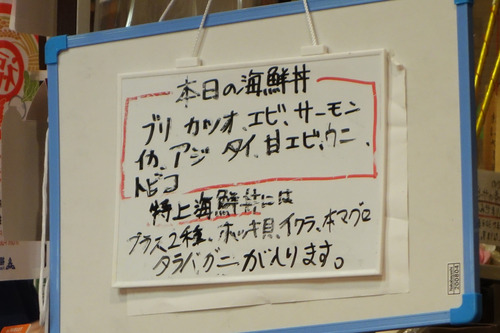 本日の海鮮丼
ブリ カツオ、エビ、サーモン
イカ、アジ タイ、甘エビ、ウニ、
トビコ
特上海鮮丼には
プラス2種、ホッキ貝、イクラ、本マグロ
タラバガニ が入ります。
200804